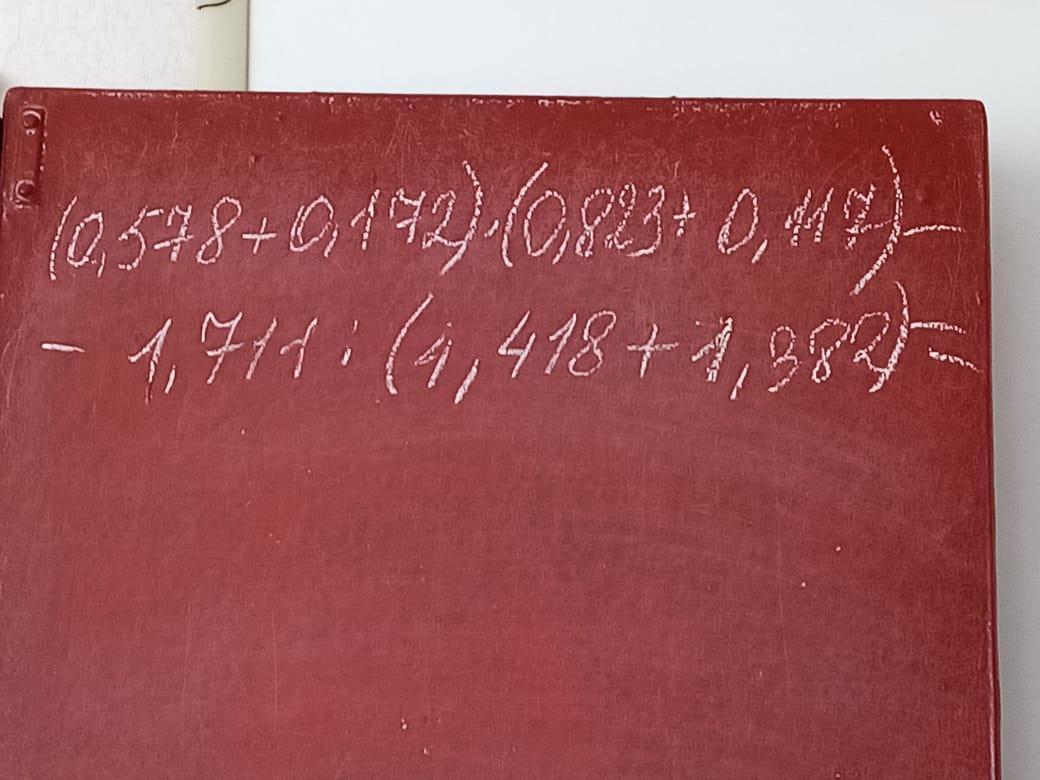 (0,578+0,172)·(0,823+0,117)-
- 1,711:(1,418+1,382)=